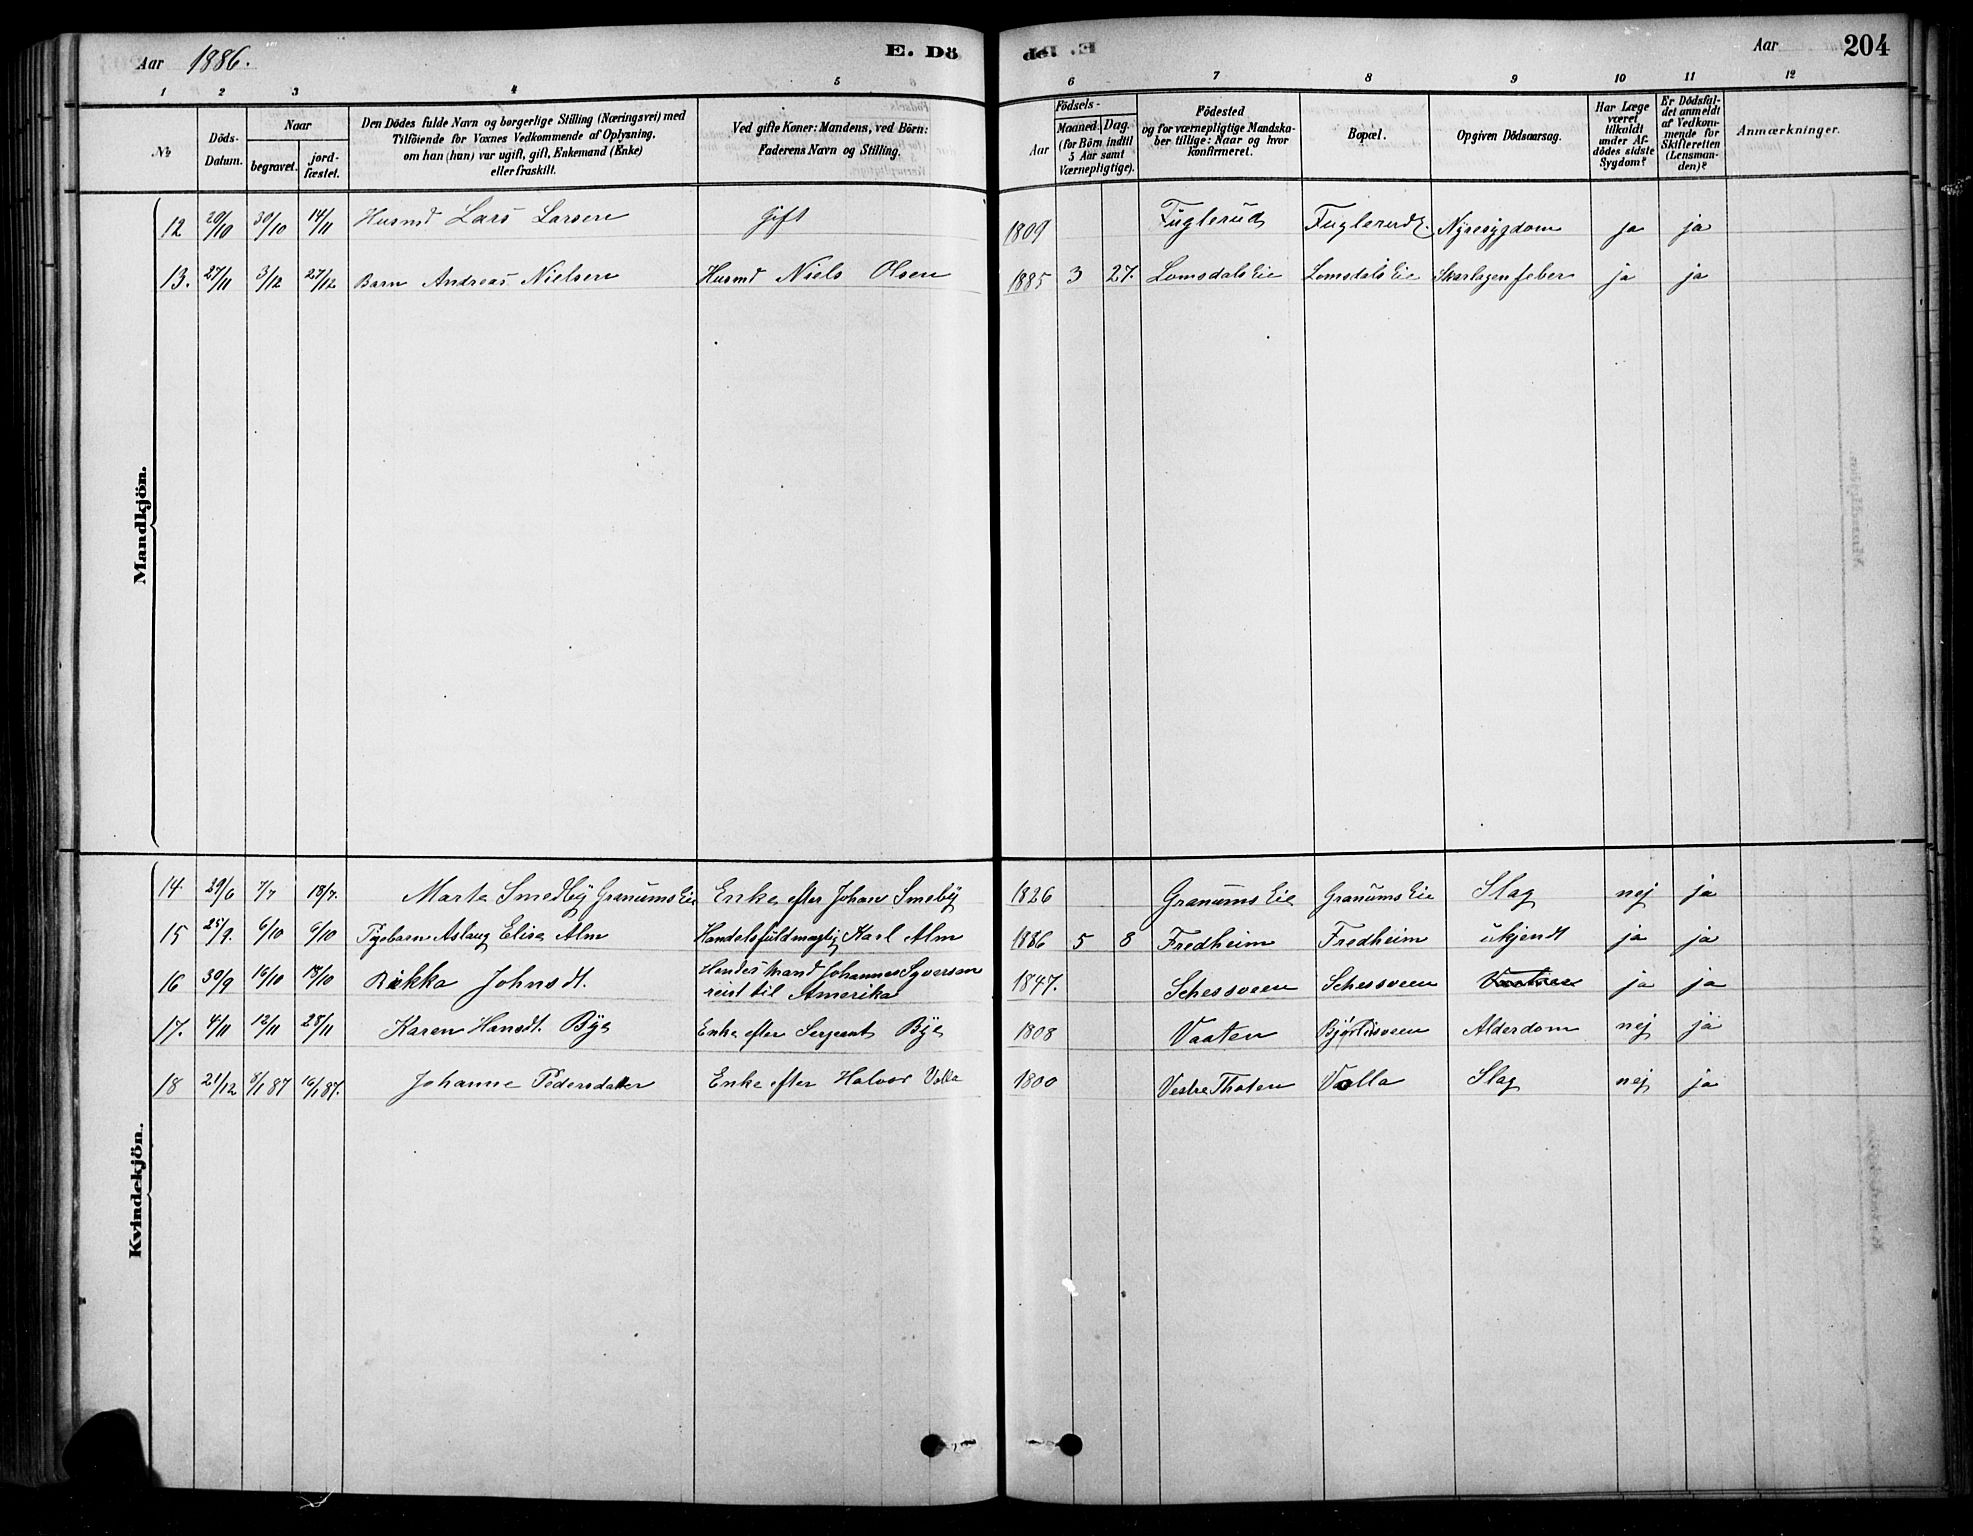 Aar 1886.
E. Dö
de. E.
Aar
204
1 2 3 4 5 6 7 8 9 10 11 12
No
Döds-Datum.
Naar
begravet.
jord-fæstet.
Den Dödes fulde Navn og borgerlige Stilling (Næringsvei) med
Tilföiende for Voxnes Vedkommende af Oplysning,
om han (hun) var ugift, gift, Enkemand (Enke)
eller fraskilt.
Ved gifte Koner: Mandens, ved Börn:
Faderens Navn og Stilling.
Födsels-
Aar
Maaned. Dag.
(for Börn indtil
5 Aar samt
Værnepligtige).
Födested
og for værnepligtige Mandska-
ber tillige: Naar og hvor
konfirmeret.
Bopæl.
Opgiven Dödsaarsag.
Har Læge
været
tilkaldt
under Af-
dödes sidste
Sygdom?
Er Dödsfal-
det anmeldt
af Vedkom-
mende for
Skifteretten
(Lensman-
den)?
Anmærkninger.
Mandkjön.
12 20/10 30/10 14/11 Husmd Lars Larsen Gift 1809 Fuglerud Fuglerud E. Nyresygdom ja ja
13. 27/11 3/12 27/12 Barn Andreas Nielsen Husmd Niels Olsen 1885 3 27. Lomsdals Eie Lomsdals Eie Skarlagenfeber ja ja
Kvindekjön.
14 29/6 7/7 18/7. Marte Smedby Granums Eie Enke efter Johan Smeby 1826 Granums Eie Granums Eie Slag nej ja
15 25/9. 6/10 6/10 Pigebarn Aslaug Elise Alm Handelsfuldmægtig Karl Alm 1886 5 8 Fredheim Fredheim ukjendt ja ja
16 30/9 16/10 18/10 Rikka Johnsdt. Hendes Mand Johannes Syversen
reist til Amerika 1847. Schessveen Schessveen ja ja
17. 4/11 12/11 28/11 Karen Hansdt. Bye Enke efter Sergeant Bye 1808 Vaaten Alderdom nej ja
18 21/12 8/1 87 16/1 87. Johanne Pedersdatter Enke efter Halvor Volla 1800 Vestre Thoten Volla Slag nej ja